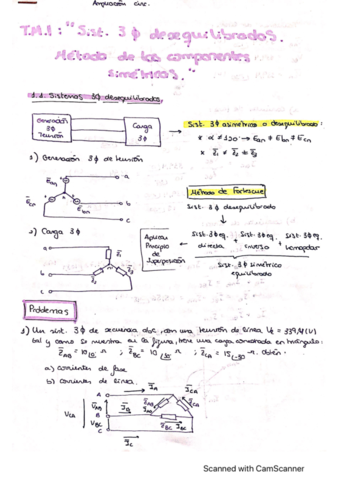 Ampliación circ.
T.M.1 : "Sist. 3ϕ desequilibrados.
Método de los componentes
simétricos."
1.1. Sistemas 3ϕ desequilibrados.
Generador
3ϕ
Tensión
Carga
3ϕ
Sist. 3ϕ asimétricos o desequilibrado:
* α ≠ 120° → Ean ≠ Ebn ≠ Ecn
* Z1 ≠ Z2 ≠ Z3
1) Generación 3ϕ de tensión
a
Ean
Ecn
Ebn
b
c
Método de Fortescue
Sist. 3ϕ desequilibrado
2) Carga 3ϕ
a
Z1
b
Z3
Z2
c
Aplicar
Principio
de
Superposición
Sist. 3ϕ eq. + Sist. 3ϕ eq. + Sist. 3ϕ eq.
directa inversa homopolar
Sist. 3ϕ simétrico
equilibrado
Problemas
1) Un sist. 3ϕ de secuencia abc, con una tensión de línea
tal y como se muestra en la figura, tiene una carga conectada en triángulo:
a) corrientes de fase
b) corrientes de línea.
A
IA
ICA
VAB
IB
ZAB
IAB
ZCA
VCA
B
VBC
ZBC
IBC
C
IC
Scanned with CamScanner